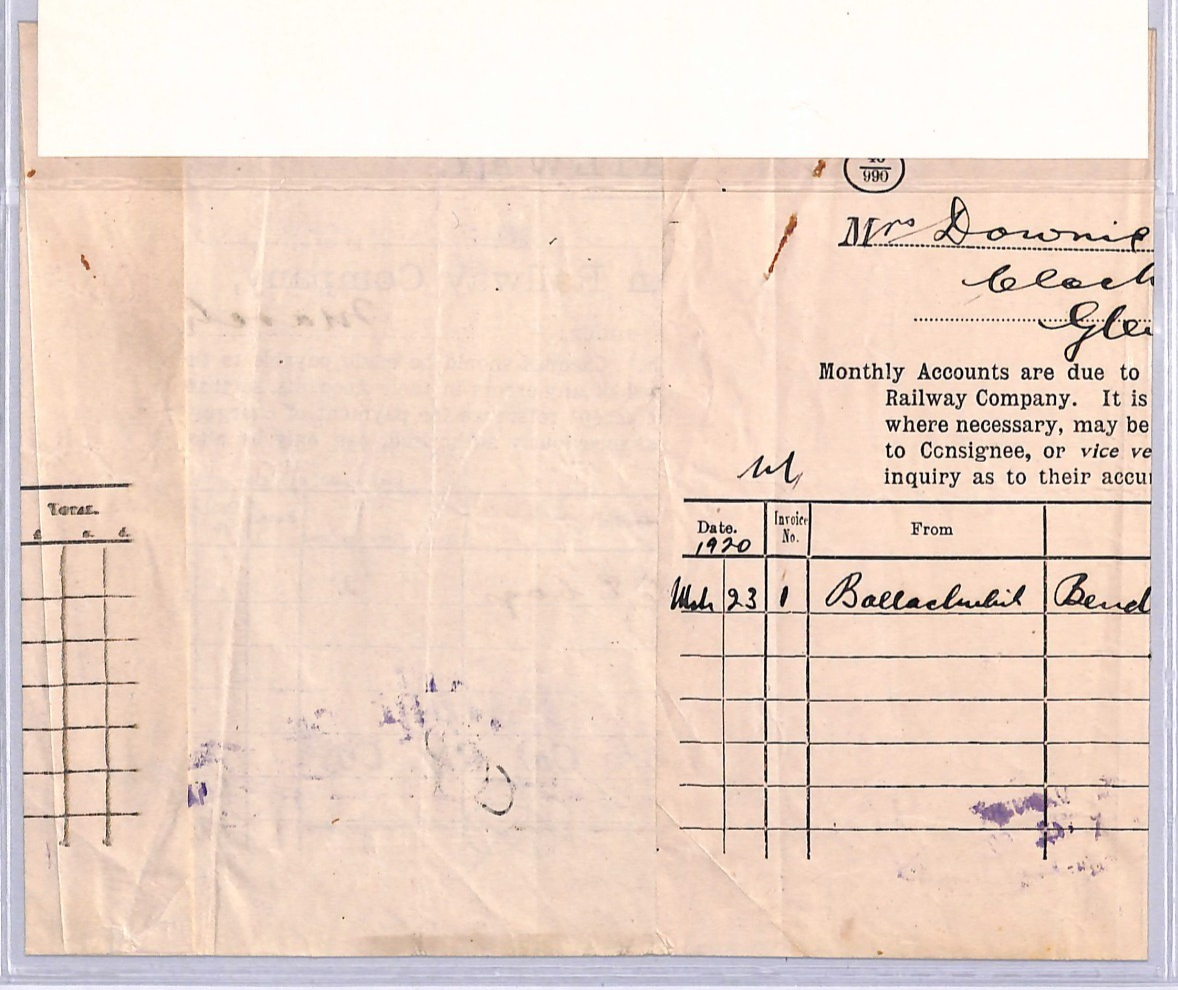 990
Mrs Downie
Clach
Glen
Monthly Accounts are due to
Railway Company. It is
where necessary, may be
to Consignee, or vice ve
inquiry as to their accu
Total.
s. d.
Date. Invoice No. From
1920
Mch 23 1 Ballachulish Bend